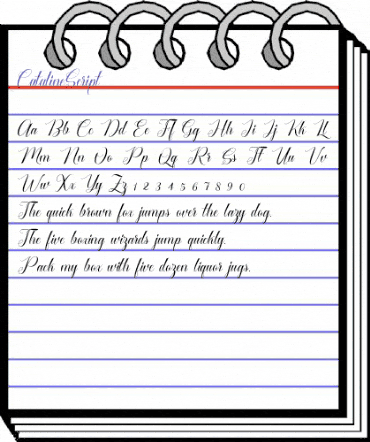 CatalineScript
Aa Bb Cc Dd Ee Ff Gg Hh Ii Jj Kk Ll
Mm Nn Oo Pp Qq Rr Ss Tt Uu Vv
Ww Xx Yy Zz 1 2 3 4 5 6 7 8 9 0
The quick brown fox jumps over the lazy dog.
The five boxing wizards jump quickly.
Pack my box with five dozen liquor jugs.